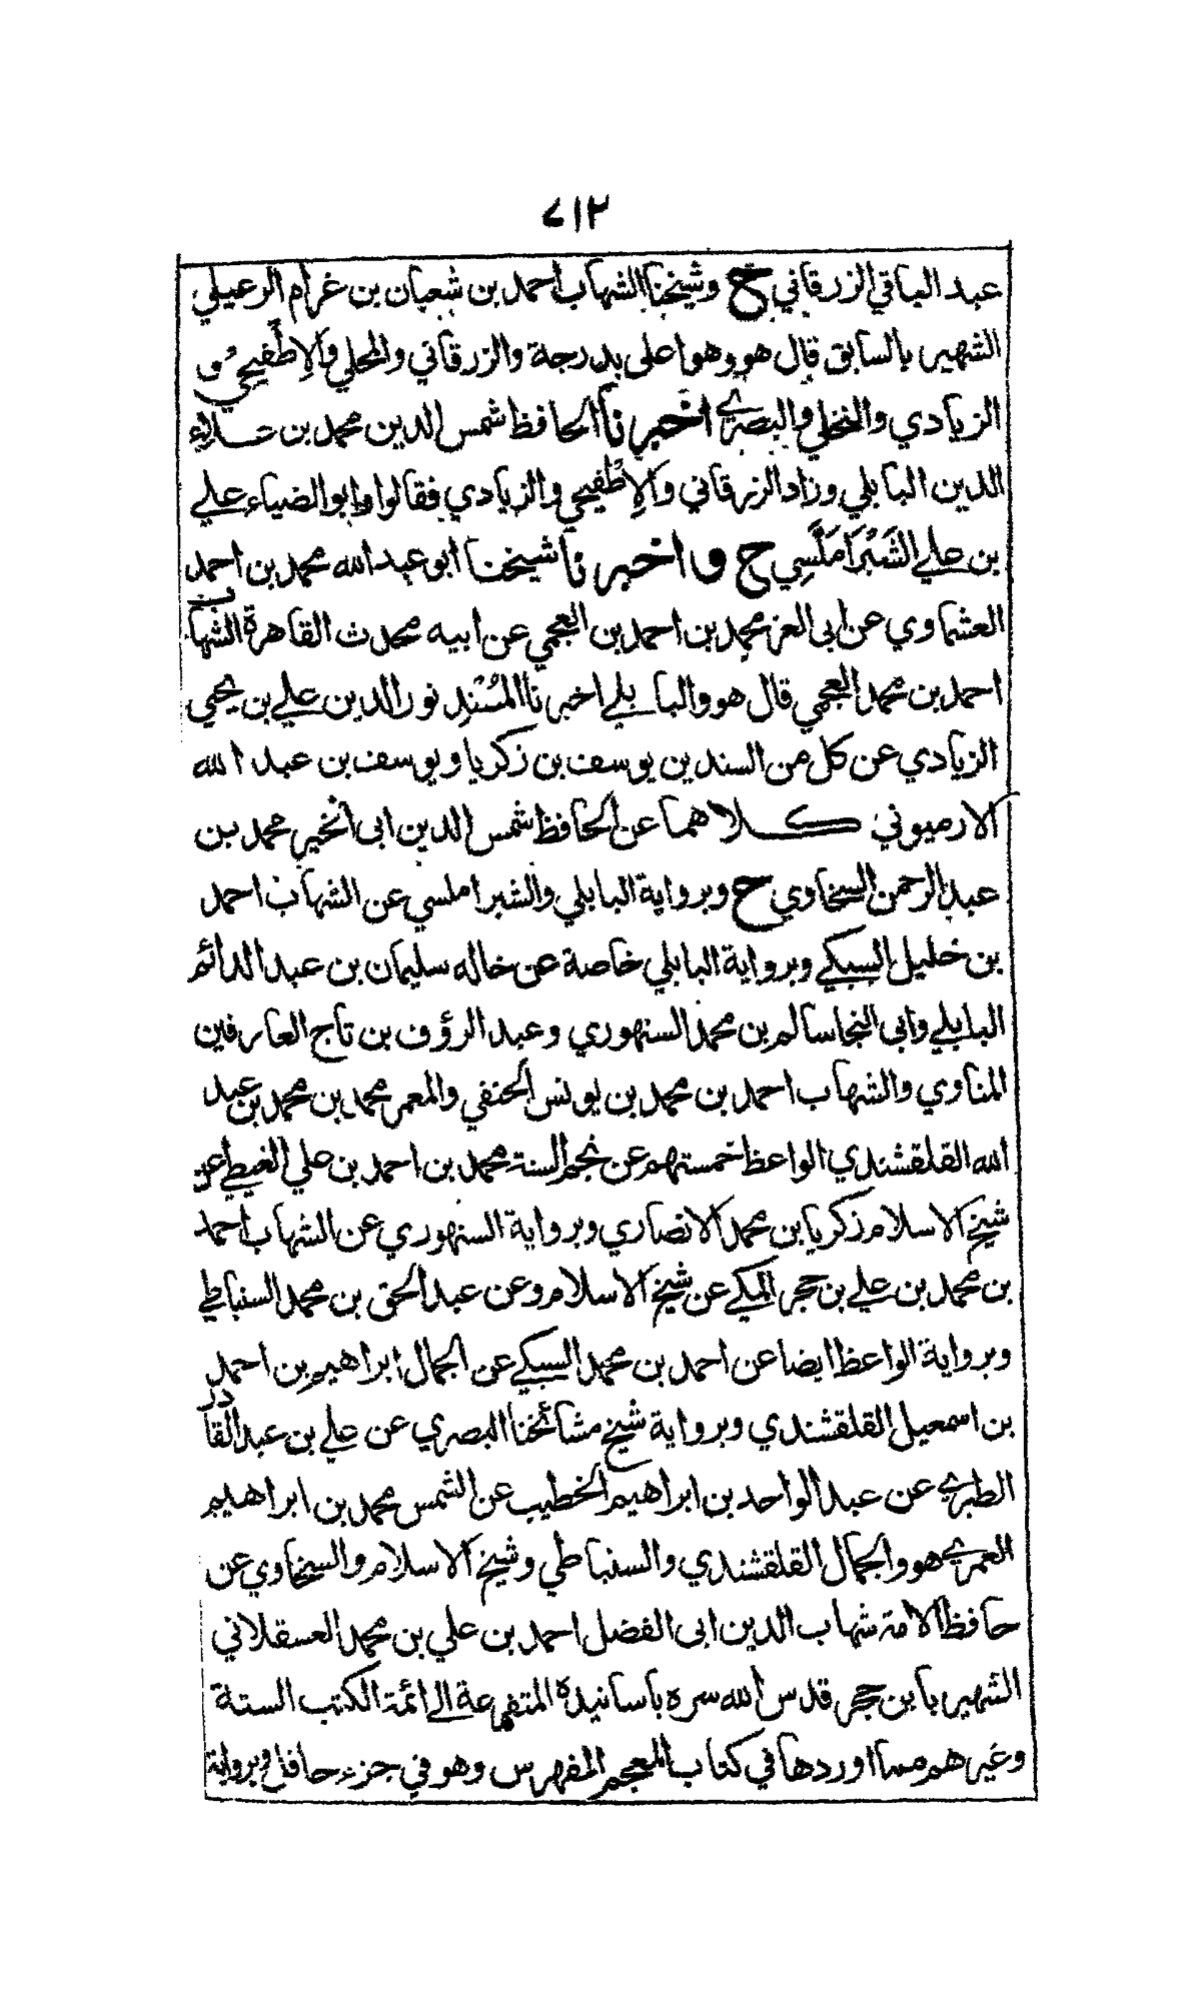 ٧١٢
عبد الباقي الزرقاني ح وشيخنا الشهاب احمد بن شعبان بن غرام الزعبلي
الشهير بالسابق قال هو وهوا على بدرجة والزرقاني والمحلي والاِطْفِيحِي و
الزيادي والنخلي والبصري اخبرنا الحافظ شمس الدين محمد بن علاء
الدين البابلي وزاد الزرقاني والاِطْفِيحي والزيادي فقالوا وابو الضياء علي
بن علي الشَّبْرَامَلِّسِي ح واخبرنا شيخنا ابو عبد الله محمد بن احمد
العشماوي عن ابي العز محمد بن احمد بن العجمي عن ابيه محدث القاهرة الشهاب
احمد بن محمد العجمي قال هو والبابلي اخبرنا المُسْنِد نور الدين علي بن يحيي
الزيادي عن كل من السندين يوسف بن زكريا ويوسف بن عبد الله
الارميوني كلاهما عن الحافظ شمس الدين ابي الخير محمد بن
عبد الرحمن السخاوي ح وبرواية البابلي والشبراملسي عن الشهاب احمد
بن خليل السبكي وبرواية البابلي خاصة عن خاله سليمان بن عبد الدائم
البابلي وابي النجا سالم بن محمد السنهوري وعبد الرؤف بن تاج العارفين
المناوي والشهاب احمد بن محمد بن يونس الحنفي والمعمر محمد بن محمد بن عبد
الله القلقشندي الواعظ خمستهم عن نجم السنة محمد بن احمد بن علي الغيطي عن
شيخ الاسلام زكريا بن محمد الانصاري وبرواية السنهوري عن الشهاب احمد
بن محمد بن علي بن حجر المكي عن شيخ الاسلام وعن عبد الحق بن محمد السنباطي
وبرواية الواعظ ايضا عن احمد بن محمد السبكي عن الجمال ابراهيم بن احمد
بن اسمعيل القلقشندي وبرواية شيخ مشائخنا البصري عن علي بن عبد القادر
الطبري عن عبد الواحد بن ابراهيم الخطيب عن الشمس محمد بن ابراهيم
العمري هو والجمال القلقشندي والسنباطي وشيخ الاسلام والسخاوي عن
حافظ الامة شهاب الدين ابي الفضل احمد بن علي بن محمد العسقلاني
الشهير بابن حجر قدس الله سره باسانيده المتفرعة الي ائمة الكتب الستة
وغيرهم مما اوردها في كتاب المعجم المفهرس وهو في جزء حافل وبرواية